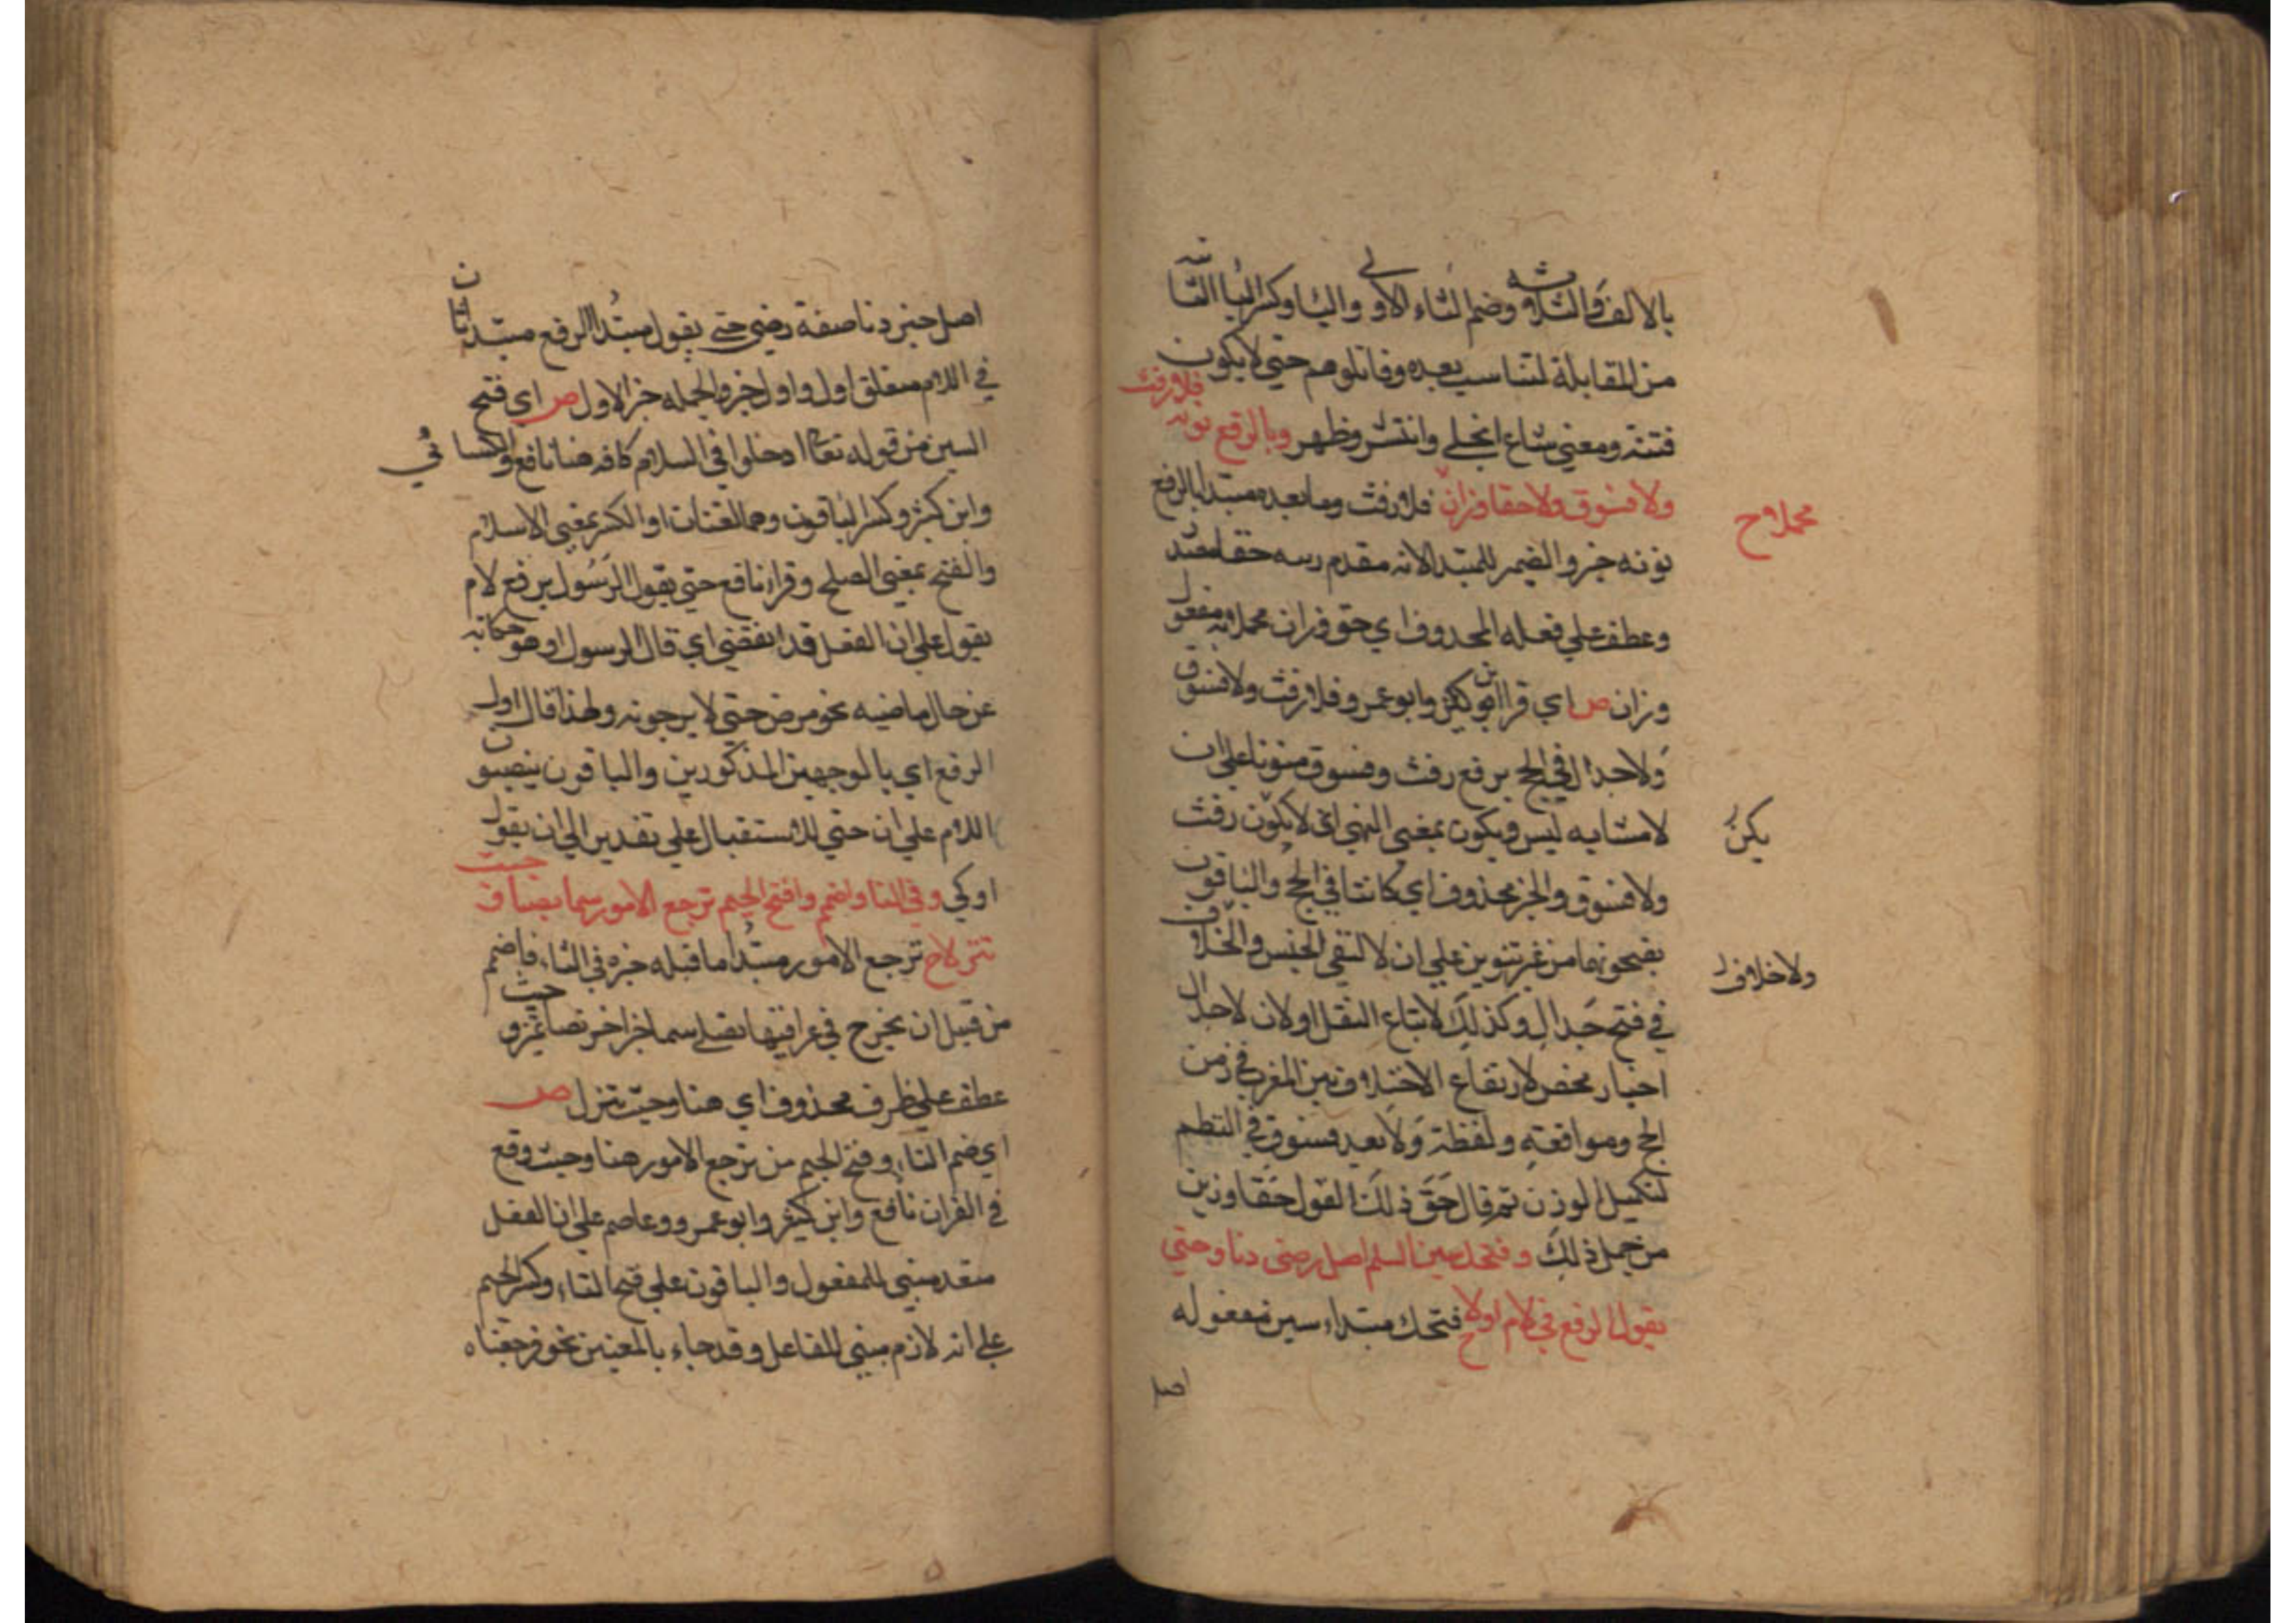 بالالف والثلاثة وضم التاء الاولى والبا وكسر البا الثانية
من المقابلة لتناسب بعده وقاتلوهم حتي لا يكون
فتنة ومعني شاع انجلي وانتشر وظهر وبالرفع نونه فلا رفث
ولا فسوق ولا حقا وزان فلا رفث وما بعده مبتدا بالرفع
محملا ح
نونه خبر والضمير للمبتدا لانه مقدم رسه حقا
وعطف علي فعله المحذوف اي حق وزان محملا به مفعول
وزان ص اي قرا ابن كثير وابو عمرو فلا رفث ولا فسوق
ولا جدال في الحج برفع رفث وفسوق منونا علي ان
لا مشابه ليس ويكون بمعني النهي اي لا يكون رفث
يكن
ولا فسوق والخبر محذوف اي كائنا في الحج والباقون
بفتحونهما من غير تنوين علي ان لا لنفي الجنس والخلاف
ولا خلاف
في فتح جدال وكذلك لاتباع النقل اولان لا جدال
اخبار محض لارتفاع الاختلاف بين في زمن
الحج وموافقته ولفظة ولا بعد فسوق في النظم
لتكميل الوزن ثم قال حق ذلك القول حقا وزين
من حمل ذلك وفتحك سين السلم اصل رضي دنا وحتي
يقول الرفع في اللام اولا ح فتحك مبتداء سين مفعوله
اصل
اصل خبر دنا صفة رضي حتي يقول مبتدا الرفع مبتدا ثان
في اللام متعلق اول واول خبره والجمله خبر الاول ص اي فتح
السين من قوله تعالى ادخلوا في السلم كافه هنا نافع والكسائي
وابن كثير وكسر الباقون وهما لغتان او الكسر بمعني الاسلام
والفتح بمعني الصلح وقرا نافع حتي يقول الرسول برفع لام
يقول علي ان الفعل قد انقضي اي قال الرسول او هو حكاية
عن حال ماضيه نحو مرض حتي لا يرجونه ولهذا قال اول
الرفع اي بالوجهين المذكورين والباقون ينصبون
اللام علي ان حتي للاستقبال علي تقدير الي ان يقول
او كي وفي التا واضمم وافتح الجيم ترجع الامور سما نصا وحيث
تنزلا ح ترجع الامور مبتدا ما قبله خبره في التاء فاضمم
من قبيل ان يجرح في عراقيبها نصلي سما اخر نصا تميز وحيث
عطف علي ظرف محذوف اي هنا وحيث تنزل ص
اي ضم التاء وفتح الجيم من ترجع الامور هنا وحيث وقع
في القران نافع وابن كثير وابو عمرو وعاصم علي ان الفعل
متعد مبني للمفعول والباقون علي فتح التاء وكسر الجيم
علي انه لازم مبني للفاعل وقد جاء بالمعنيين نحو فرجعناه